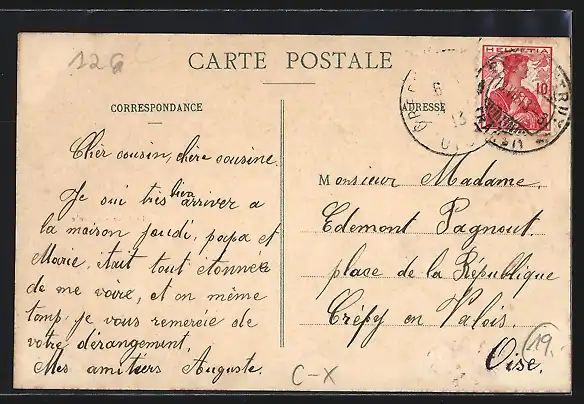 12G
CARTE POSTALE
CORRESPONDANCE
ADRESSE
HELVETIA
10
6
13
Chèr cousin, chère cousine.
Je sui très bien arriver a
la maison jeudi, papa et
Marie, était tout étonnée
de me voire, et on même
tems je vous remercie de
votre dérangement,
Mes amitiers Auguste.
Monsieur Madame,
Edemont Pagnout.
place de la République
Crépy en Valois.
Oise.
19.
C-X